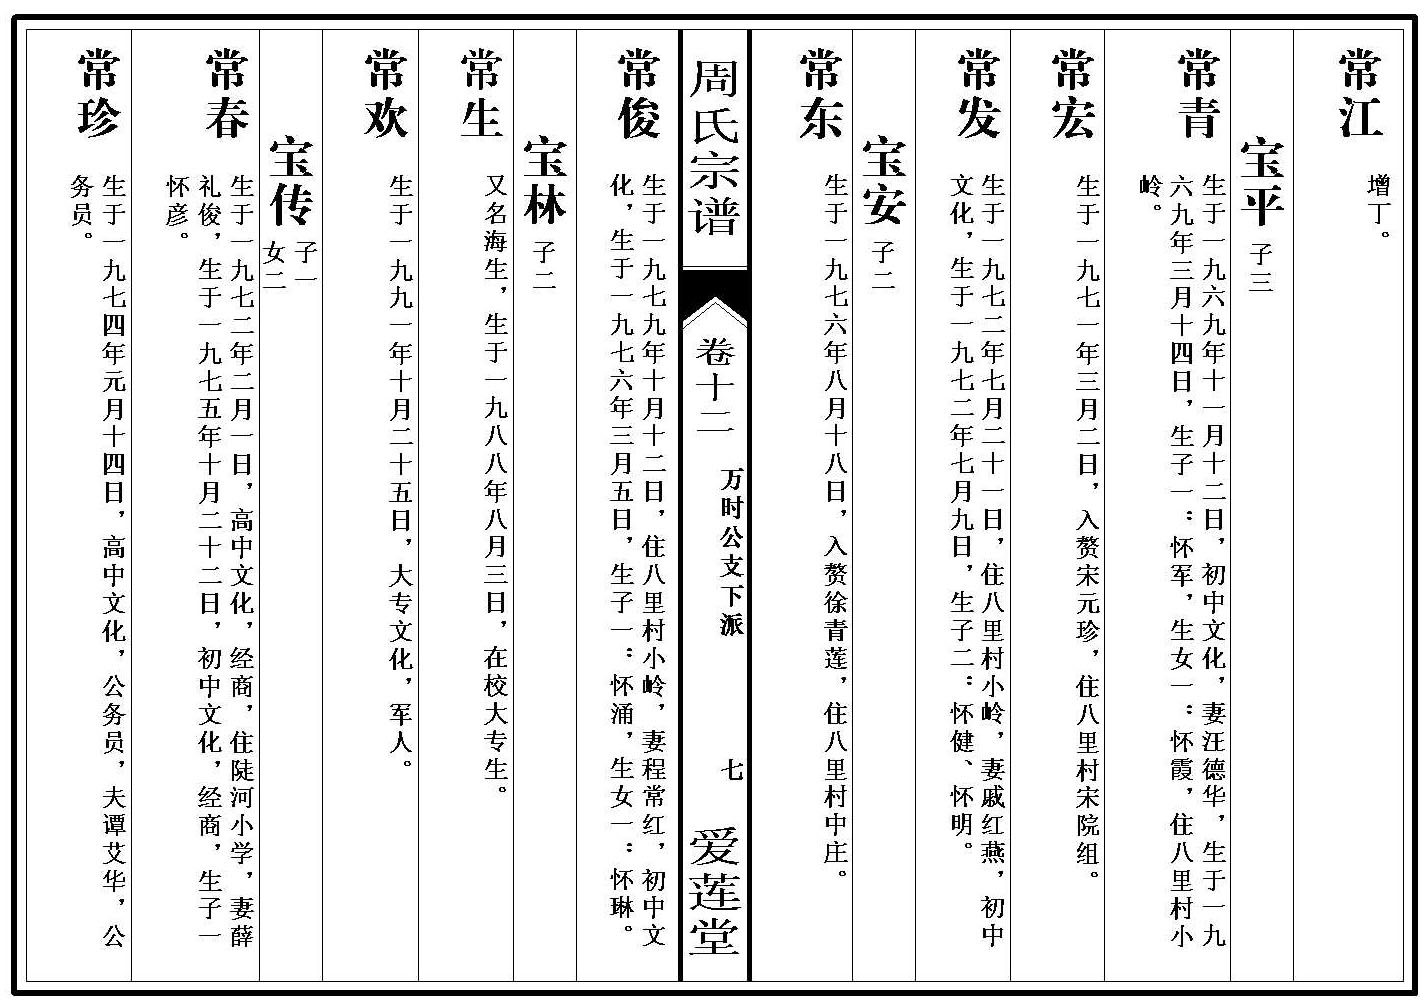 常江
增丁。
宝平
子三
常青
生于一九六九年十一月十二日，初中文化，妻汪德华，生于一九
六九年三月十四日，生子一：怀军，生女一：怀霞，住八里村小
岭。
常宏
生于一九七一年三月二日，入赘宋元珍，住八里村宋院组。
常发
生于一九七二年七月二十一日，住八里村小岭，妻戚红燕，初中
文化，生于一九七二年七月九日，生子二：怀健、怀明。
宝安
子二
常东
生于一九七六年八月十八日，入赘徐青莲，住八里村中庄。
周氏宗谱
卷十二
万时公支下派
七
爱莲堂
常俊
生于一九七九年十月十二日，住八里村小岭，妻程常红，初中文
化，生于一九七六年三月五日，生子一：怀涌，生女一：怀琳。
宝林
子二
常生
又名海生，生于一九八八年八月三日，在校大专生。
常欢
生于一九九一年十月二十五日，大专文化，军人。
宝传
子一
女二
常春
生于一九七二年二月一日，高中文化，经商，住陡河小学，妻薛
礼俊，生于一九七五年十月二十二日，初中文化，经商，生子一
怀彦。
常珍
生于一九七四年元月十四日，高中文化，公务员，夫谭艾华，公
务员。